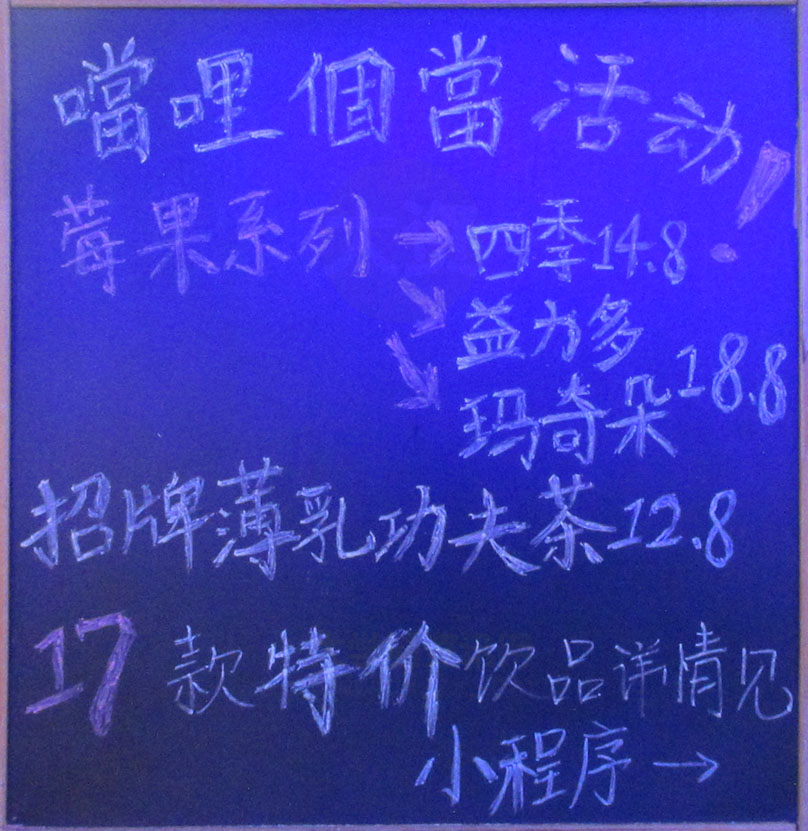 噹哩個當活动!
莓果系列→四季14.8
益力多
玛奇朵18.8
招牌薄乳功夫茶12.8
17款特价饮品详情见
小程序→